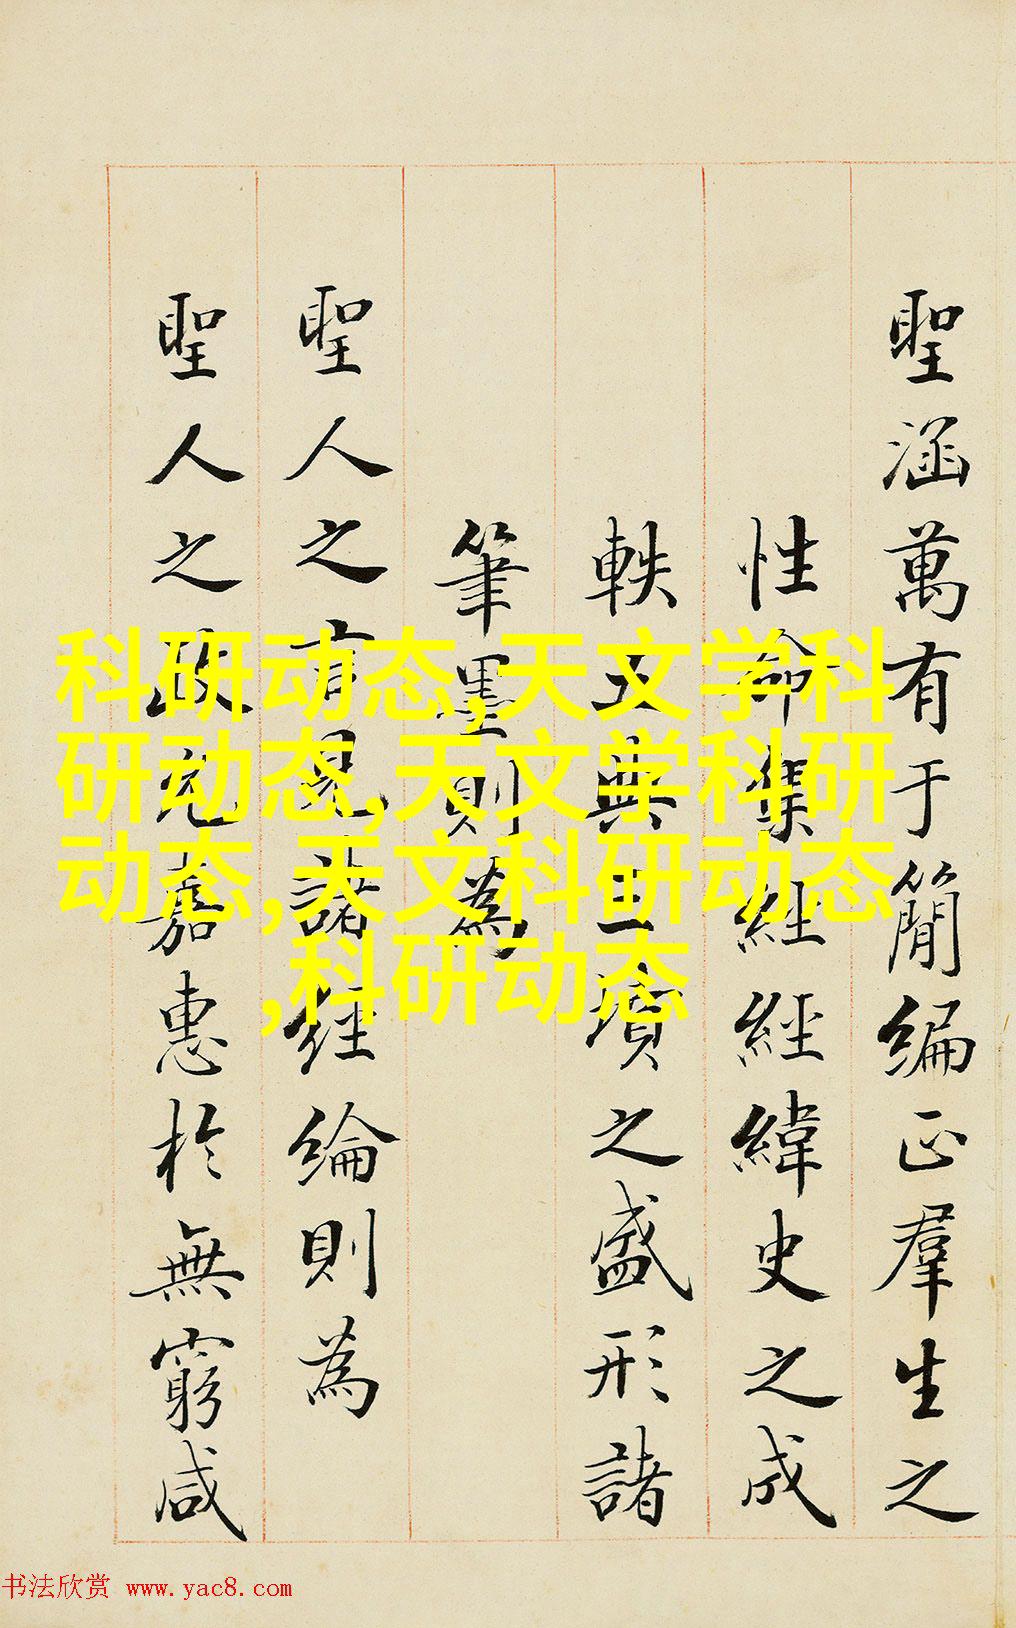 聖涵萬有于簡編正羣生之
性命集經經緯史之成
軼五典三墳之盛形諸
筆墨則為
聖人之言見諸經綸則為
聖人之政允嘉惠於無窮咸
科研动态,天文学科
研动态,天文学科研
动态,天文科研动态
,科研动态
书法欣赏 www.yac8.com